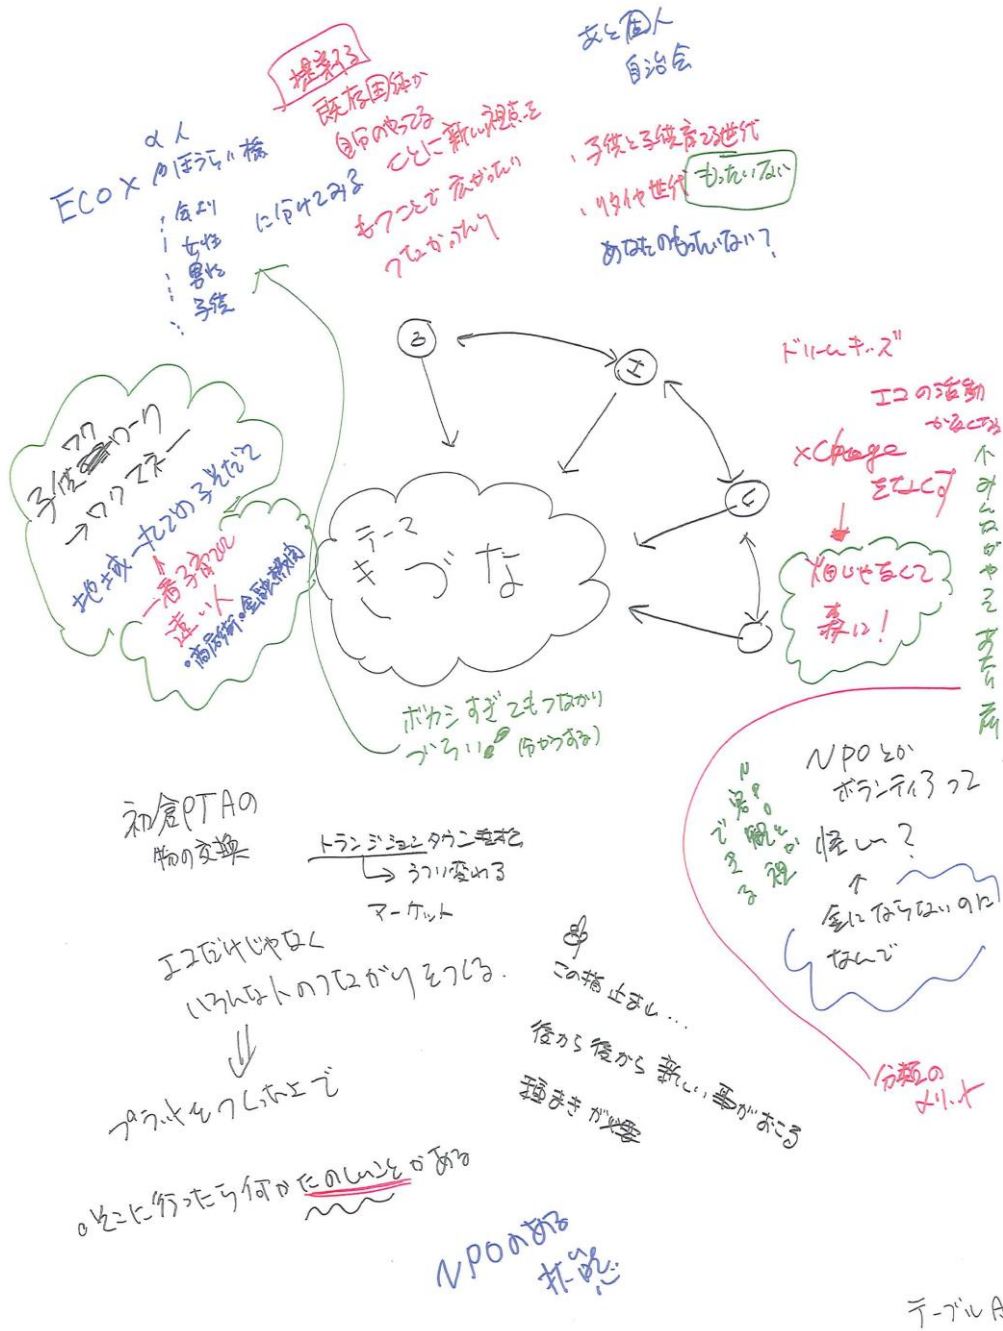 あと個人
自治会
提案する
既存団体が
自分のやってる
ことに新しい視点を
もつことで広がったり
つながったり
ECO×
女性
男性
子供
に分けてみる
・子供と子供育てる世代
・リタイヤ世代
もったいない
あなたのもったいない?
ろ
エ
ドリームキッズ
エコの活動
×Change
をなくす
畑じゃなくて
森に!
みんながやって あたり前
子供 ワーク
→ワクマネー
地域 子そだて
一番子育てに
遠い人
・商店街・金融機関
テーマ
きづな
ボカシすぎてもつながり
づらい
初倉PTAの
物の交換
トランジションタウン
→うつり変わる
マーケット
エコだけじゃなく
いろんな人のつながりをつくる.
⇓
プラットをつくった上で
・そこに行ったら何かたのしいことがある
この指止まし…
後から後から新しい事がおこる
種まきが必要
NPOとか
ボランティアって
怪しい?
↑
金にならないのに
なんで
分類の
メリット
NPOのある
テーブルA